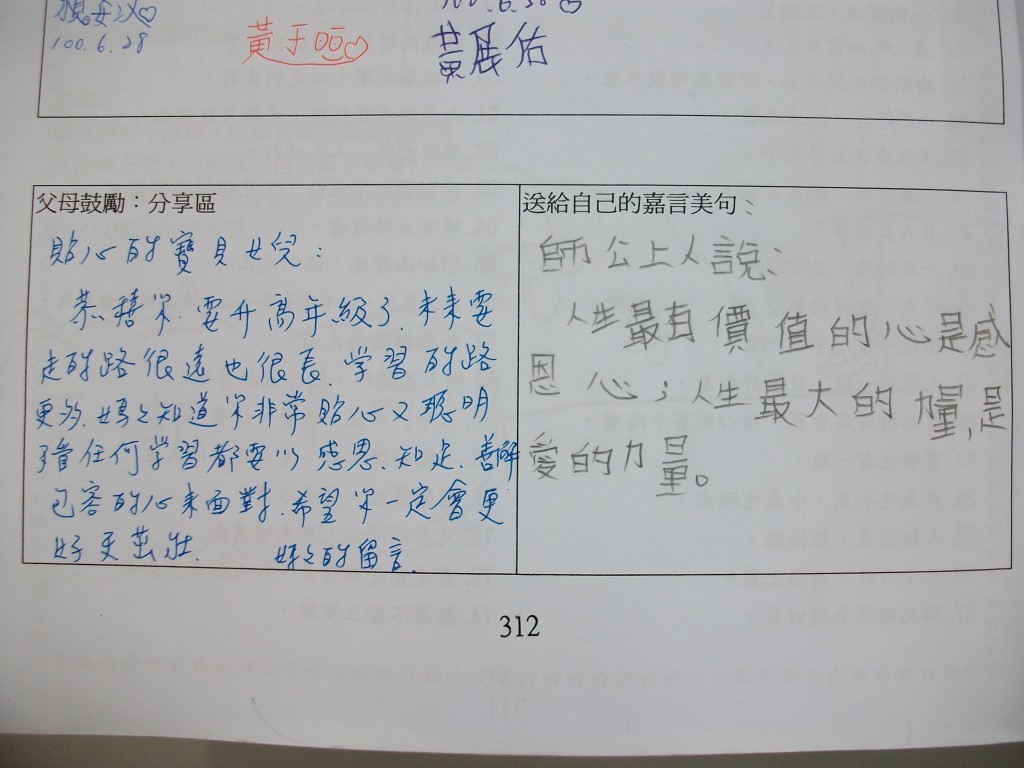 100.6.28
100.6.28
黃于
黃展佑
父母鼓勵：分享區
貼心的寶貝女兒：
恭禧你.要升高年級了.未來要
走的路很遠也很長.学習的路
更多.媽之知道你非常貼心又聰明
任何学習都要以感恩.知足.善解
包容的心來面對.希望你一定會更
好更茁壯.
媽之的留言.
送給自己的嘉言美句：
師公上人說、
人生最有價值的心是感
恩心；人生最大的力量,是
愛的力量。
312